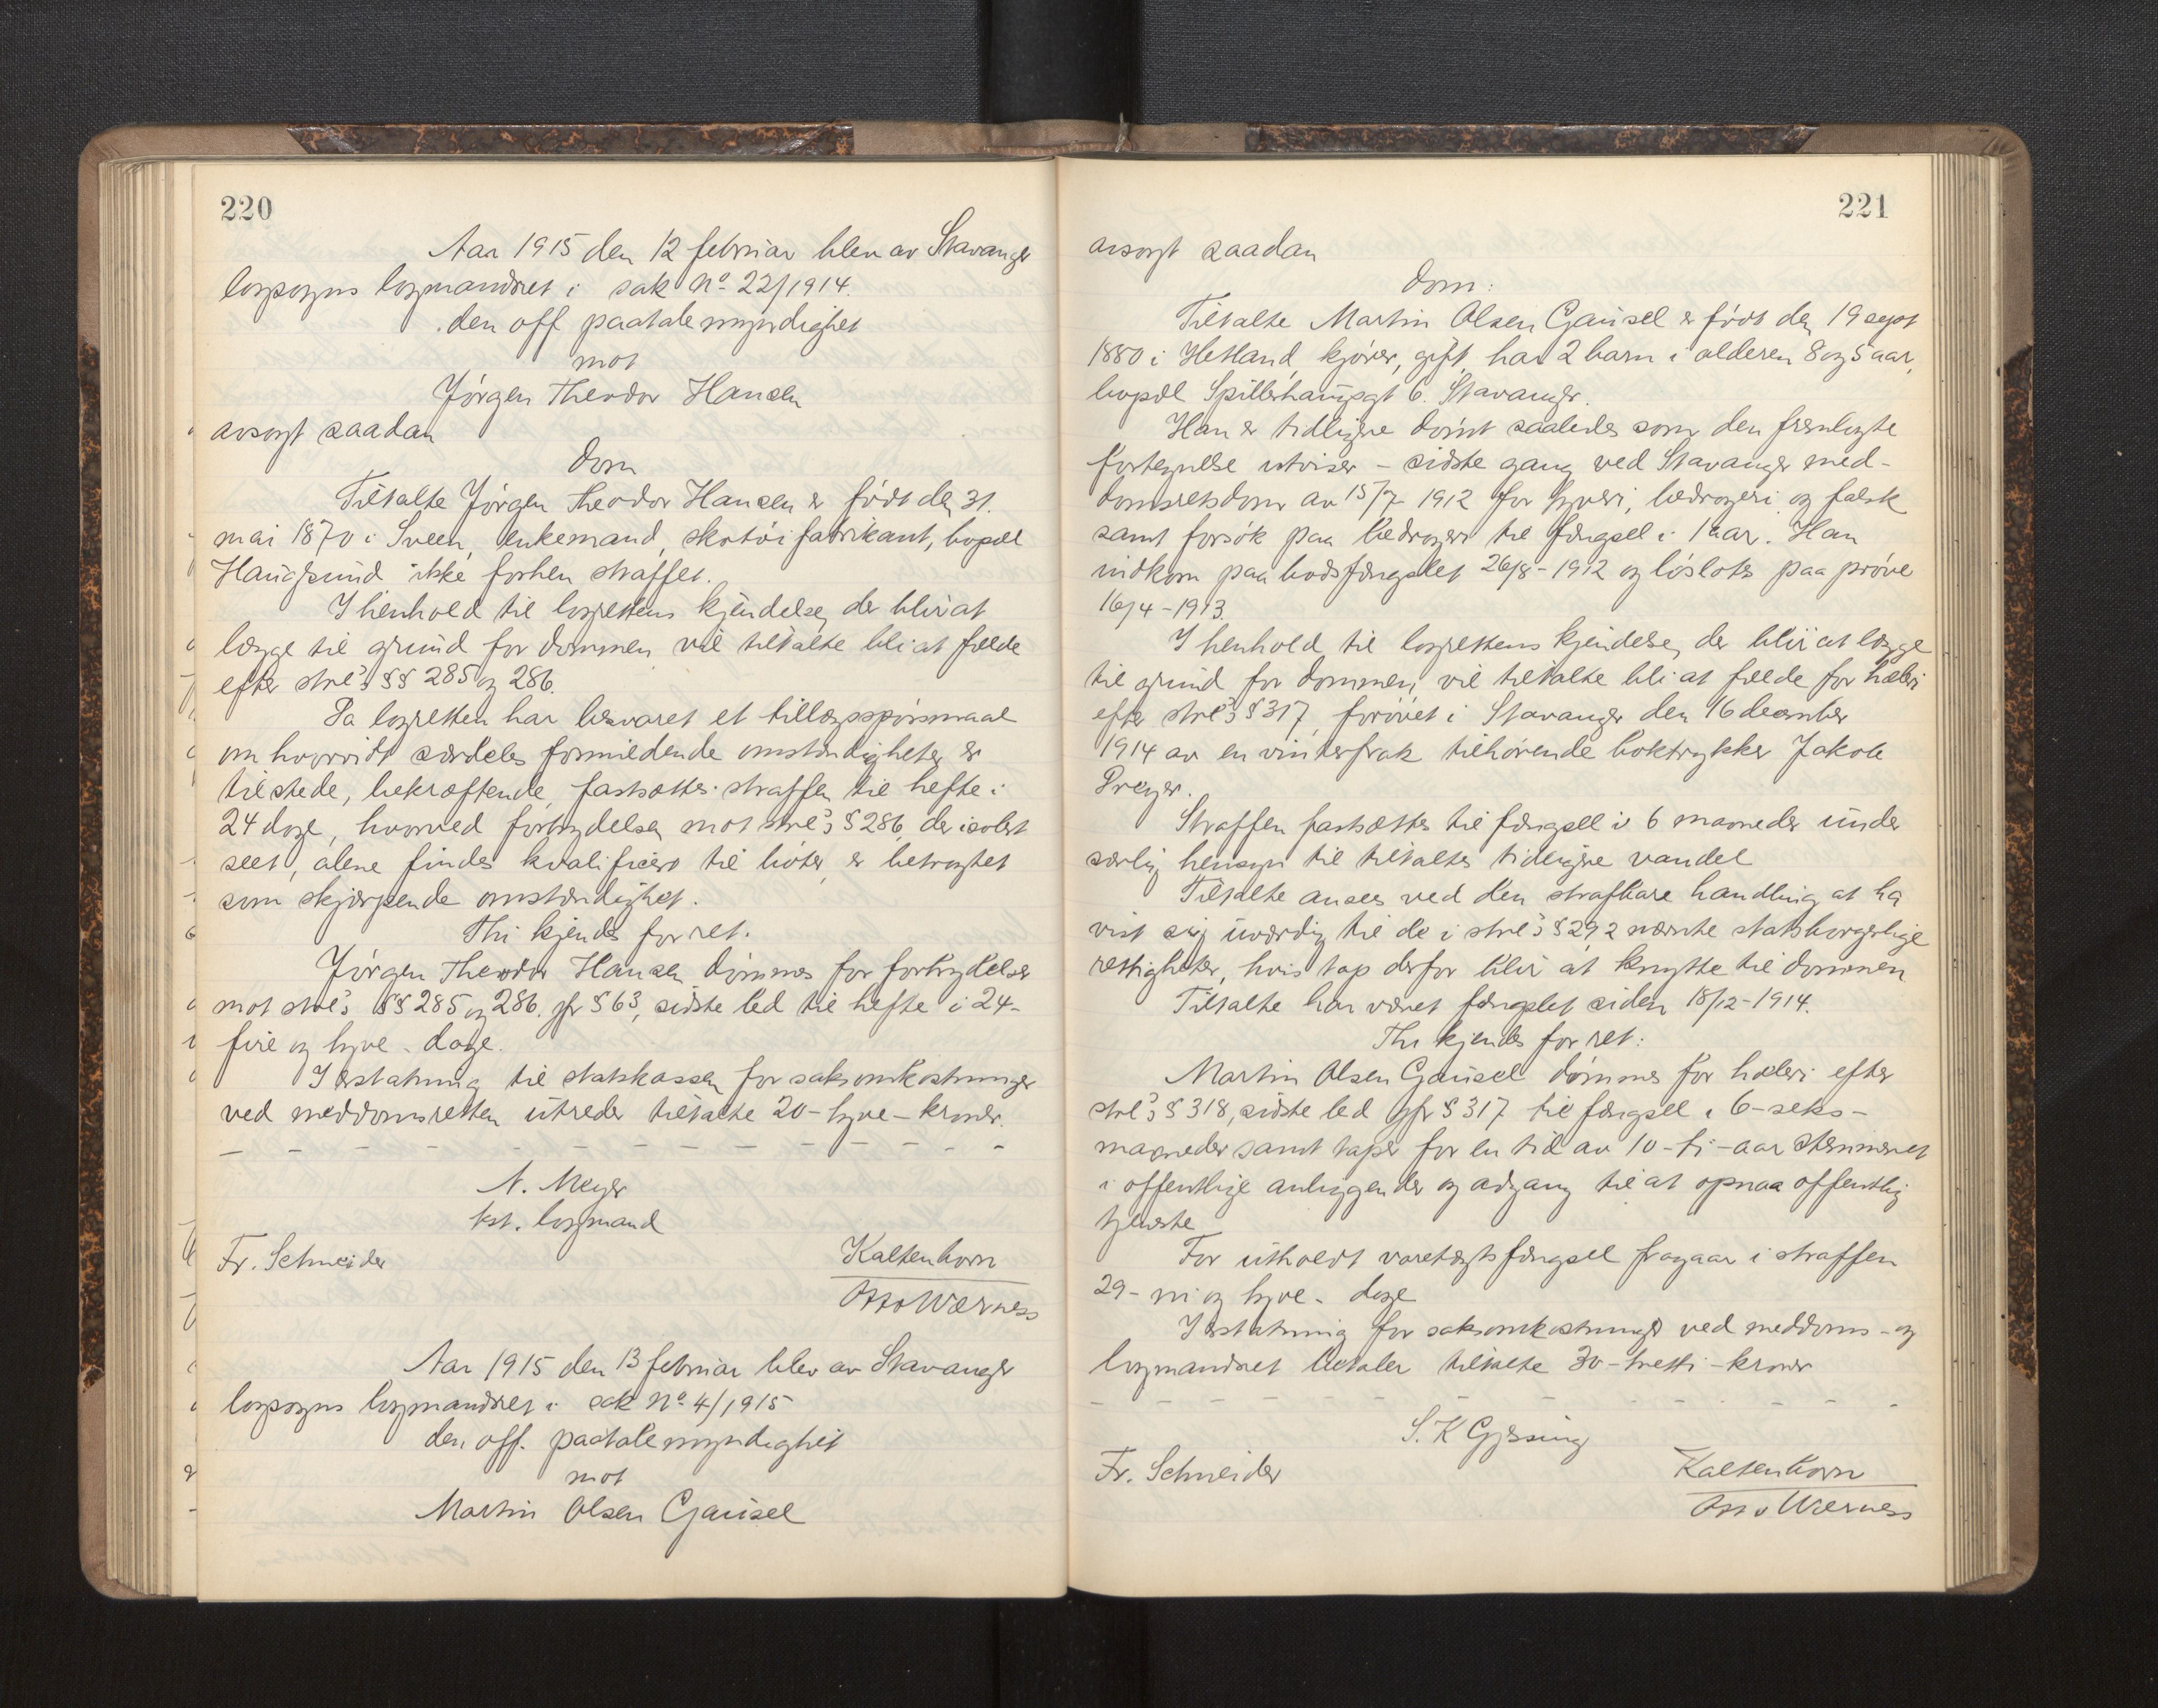 220
Aar 1915 den 12 februar blev av Stavanger
lagsogns lagmandsret i sak No 22/1914.
den off paatalemyndighet
mot
Jörgen Theodor Hansen
avsagt saadan
Dom
Tiltalte Jörgen Theodor Hansen er födt den 31.
mai 1870 i Sveen, enkemand, skotöifabrikant, bopæl
Haugesund ikke forhen straffet.
I henhold til lagrettens kjendelse, der blir at
lægge til grund for dommen vil tiltalte bli at fælde
efter strl's §§ 285 og 286.
Da lagretten har besvaret et tillægsspörsmaal
om hvorvidt særdeles formildende omstændigheter er
tilstede, bekræftende, fastsættes straffen til hefte i
24 dage, hvorved forbrydelsen mot strl's § 286, der isolert
seet, alene findes kvalificert til böter, er betragtet
som skjærpende omstændighet.
Thi kjendes for ret.
Jörgen Theodor Hansen dömmes for forbrydelser
mot strl's §§ 285 og 286. jfr § 63, sidste led til hefte i 24-
fire og tyve - dage.
I erstatning til statskassen for saksomkostninger
ved meddomsretten utreder tiltalte 20 - tyve - kroner.
N. Meyer
kst. lagmand
Fr. Schneider
Kaltenborn
Otto Wærness
Aar 1915 den 13 februar blev av Stavanger
lagsogns lagmandsret i sak No 4/1915
den off. paatalemyndighet
mot
Martin Olsen Gausel
221
avsagt saadan
Dom:
Tiltalte Martin Olsen Gausel er födt den 19 sept
1880 i Hetland, kjörer, gift, har 2 barn i alderen 8 og 5 aar,
bopæl Spilderhaugsgt 6. Stavanger.
Han er tidligere dömt saaledes som den fremlagte
fortegnelse utviser - sidste gang ved Stavanger med-
domsretsdom av 15/7 1912 for tyveri, bedrageri og falsk
samt forsök paa bedrageri til fængsel i 1 aar. Han
indkom paa bodsfængslet 26/8 - 1912 og löslotes paa pröve
16/4 - 1913.
I henhold til lagrettens kjendelse, der blir at lægge
til grund for dommen, vil tiltalte bli at fælde for hæleri
efter strl's § 317, forövet i Stavanger den 16 december
1914 av en vinterfrak tilhörende boktrykker Jakob
Dreyer.
Straffen fastsættes til fængsel i 6 maaneder under
særlig hensyn til tiltaltes tidligere vandel
Tiltalte ansees ved den strafbare handling at ha
vist sig uværdig til de i strl's § 29, 2 nævnte statsborgerlige
rettigheter, hvis tap derfor blir at knytte til dommen
Tiltalte har været fængslet siden 18/12 - 1914.
Thi kjendes for ret:
Martin Olsen Gausel dömmes for hæleri efter
strl's § 318, sidste led jfr § 317 til fængsel i 6 - seks -
maaneder samt taper for en tid av 10 - ti - aar stemmeret
i offentlige anliggender og adgang til at opnaa offentlig
tjeneste
For utholdt varetægtsfængsel fragaar i straffen
29 - ni og tyve - dage
I erstatning for saksomkostninger ved meddoms- og
lagmandsret betaler tiltalte 30 - tretti - kroner
S. K Gjessing
Fr. Schneider
Kaltenborn
Otto Wærness